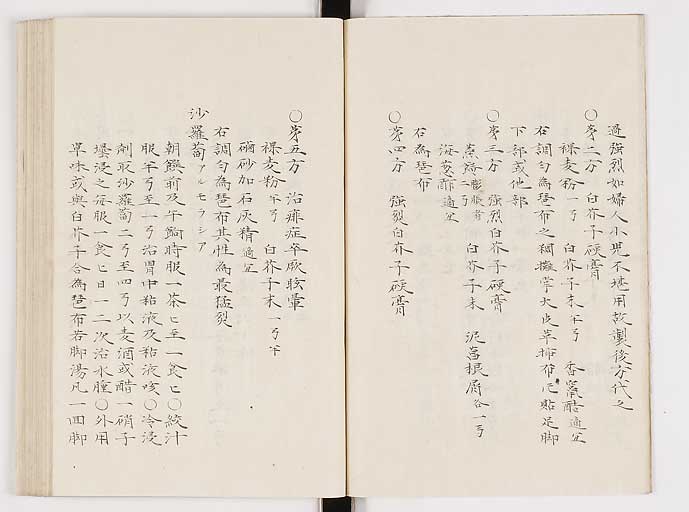 過強烈如婦人小児不堪用故製後方代之
○第二方　白芥子硬膏
裸麦粉一弓　白芥子末半弓　香竄酢適宜
右調匀為琶布之稠攤掌大皮革揷布ニ貼足脚
下部或他部
○第三方　強烈白芥子硬膏
白芥子末　泥菖根屑各一弓
海葱酢適宜
右為琶布
○第四方　強烈白芥子硬膏
○第五方　治痱症卒厥眩暈
裸麦粉半弓　白芥子末一弓半
磠砂加石灰精適宜
右調匀為琶布其性為最猛烈
沙羅蔔アルモラシア
朝餐前及午餉時服一茶匕至一食匕○絞汁
服半弓至一弓治胃中粘液及粘液咳○冷浸
劑取沙羅蔔二弓至四弓以麦酒或醋一硝子
壜浸之毎服一食匕日一二次治水腫○外用
單味或與白芥子合為琶布若脚湯凡一四脚